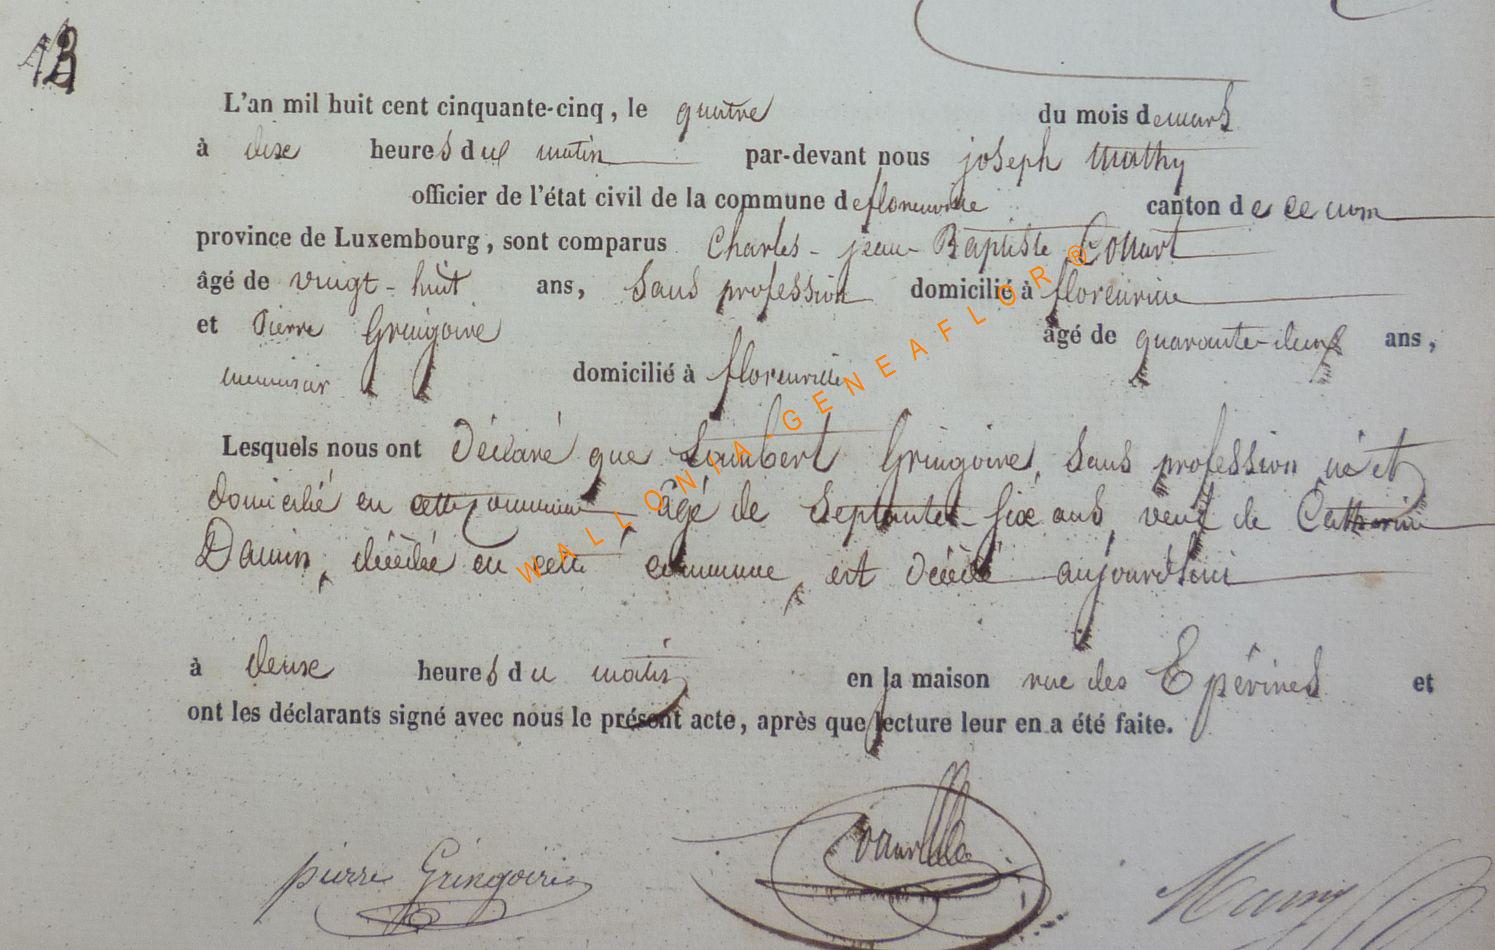 13
L'an mil huit cent cinquante-cinq, le quatre du mois de mars
à dixe heures du matin par-devant nous joseph Mathy
officier de l'état civil de la commune de florenville canton de ce nom
province de Luxembourg, sont comparus Charles - jean - Baptiste Collart
âgé de vingt - huit ans, Sans profession domicilié à florenville
et Pierre Gringoire âgé de quarante-deux ans,
menuisier domicilié à florenville
Lesquels nous ont Déclaré que Lambert Gringoire, Sans profession né et
domicilié en cette commune âgé de Septante-sixe ans, veuf de Catherine
Damin, décèdée en cette commune, est décèdé aujourdhui
à deuxe heures du matin en la maison rue des Epérines et
ont les déclarants signé avec nous le présent acte, après que lecture leur en a été faite.
pierre Gringoire
WALLONIA-GENEAFLOR®